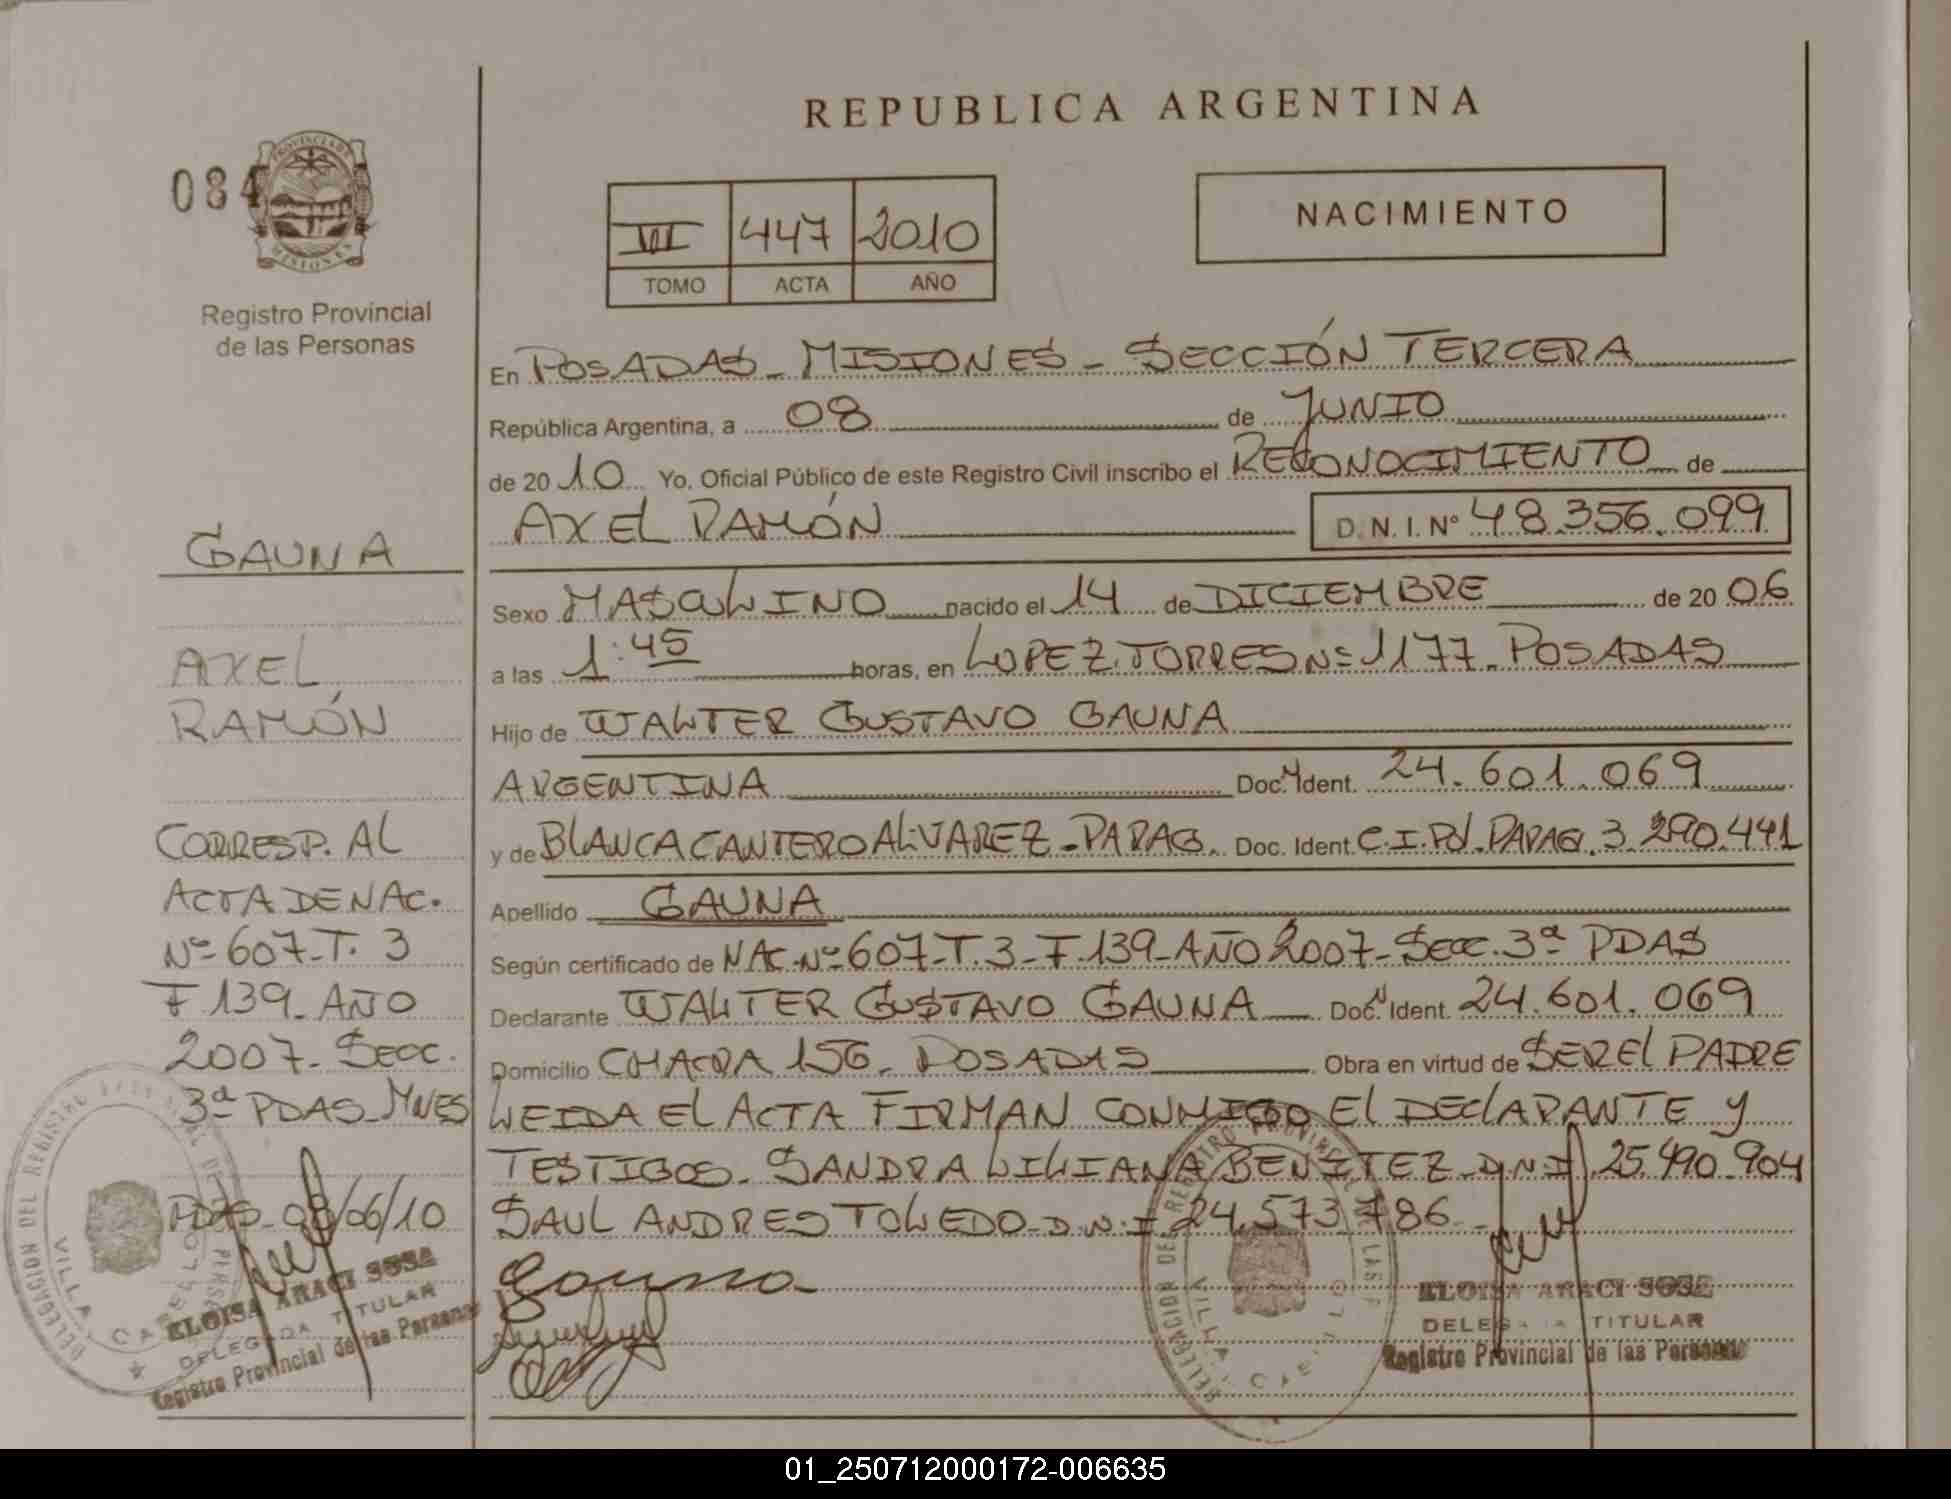 REPUBLICA ARGENTINA
084
PROVINCIA DE
MISIONES
Registro Provincial
de las Personas
III 447 2010
TOMO ACTA AÑO
NACIMIENTO
En POSADAS - MISIONES - SECCIÓN TERCERA
República Argentina, a 08 de JUNIO
de 2010 Yo. Oficial Público de este Registro Civil inscribo el RECONOCIMIENTO de
AXEL RAMÓN D.N.I. Nº 48.356.099
Sexo MASCULINO nacido el 14 de DICIEMBRE de 2006
a las 1:45 horas, en LOPEZ TORRES Nº 1177 - POSADAS
Hijo de WALTER GUSTAVO GAUNA
ARGENTINA Doc. N Ident. 24.601.069
y de BLANCA CANTERO ALVAREZ - PARAG. Doc. Ident. C.I. Pol. PARAG. 3.290.441
Apellido GAUNA
Según certificado de NAC. Nº 607 - T. 3 - F. 139 - AÑO 2007 - SECC. 3ª PDAS
Declarante WALTER GUSTAVO GAUNA Doc. N Ident. 24.601.069
Domicilio CHACRA 156 - POSADAS Obra en virtud de SER El PADRE
LEIDA El ACTA FIRMAN CONMIGO El DEClARANTE y
TESTIGOS - SANDRA LILIANA BENITEZ - D.N.I. 25.490.904
SAUL ANDRES TOLEDO - D.N.I. 24.573.786
GAUNA
AXEL
RAMÓN
CORRESP. AL
ACTA DE NAC.
Nº 607 - T. 3
F 139 - AÑO
2007 - SECC.
3ª PDAS - MNES
PDAS - 08/06/10
Gauna
ELOISA ARACI SOSA
DELEGADA TITULAR
Registro Provincial de las Personas
ELOISA ARACI SOSA
DELEGADA TITULAR
Registro Provincial de las Personas
DELEGACION DEL REGISTRO PROVINCIAL DE LAS PERSONAS
VILLA CABELLO
DELEGACION DEL REGISTRO PROVINCIAL DE LAS P
VILLA CABELLO
01_250712000172-006635